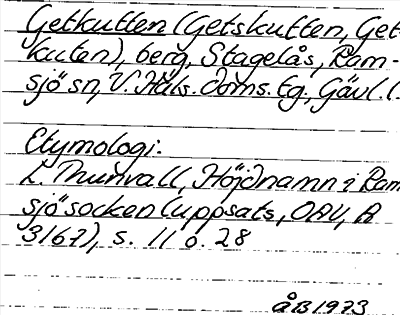 Getkutten (Getskutten, Get-
kuten), berg, Stagelås, Ram-
sjö sn, V. Häls. doms. tg, Gävl. l.
Etymologi:
L. Thunvall, Höjdnamn i Ram
sjö socken (uppsats, OAU, A
3167), s. 11 o. 28
ÅB 1973